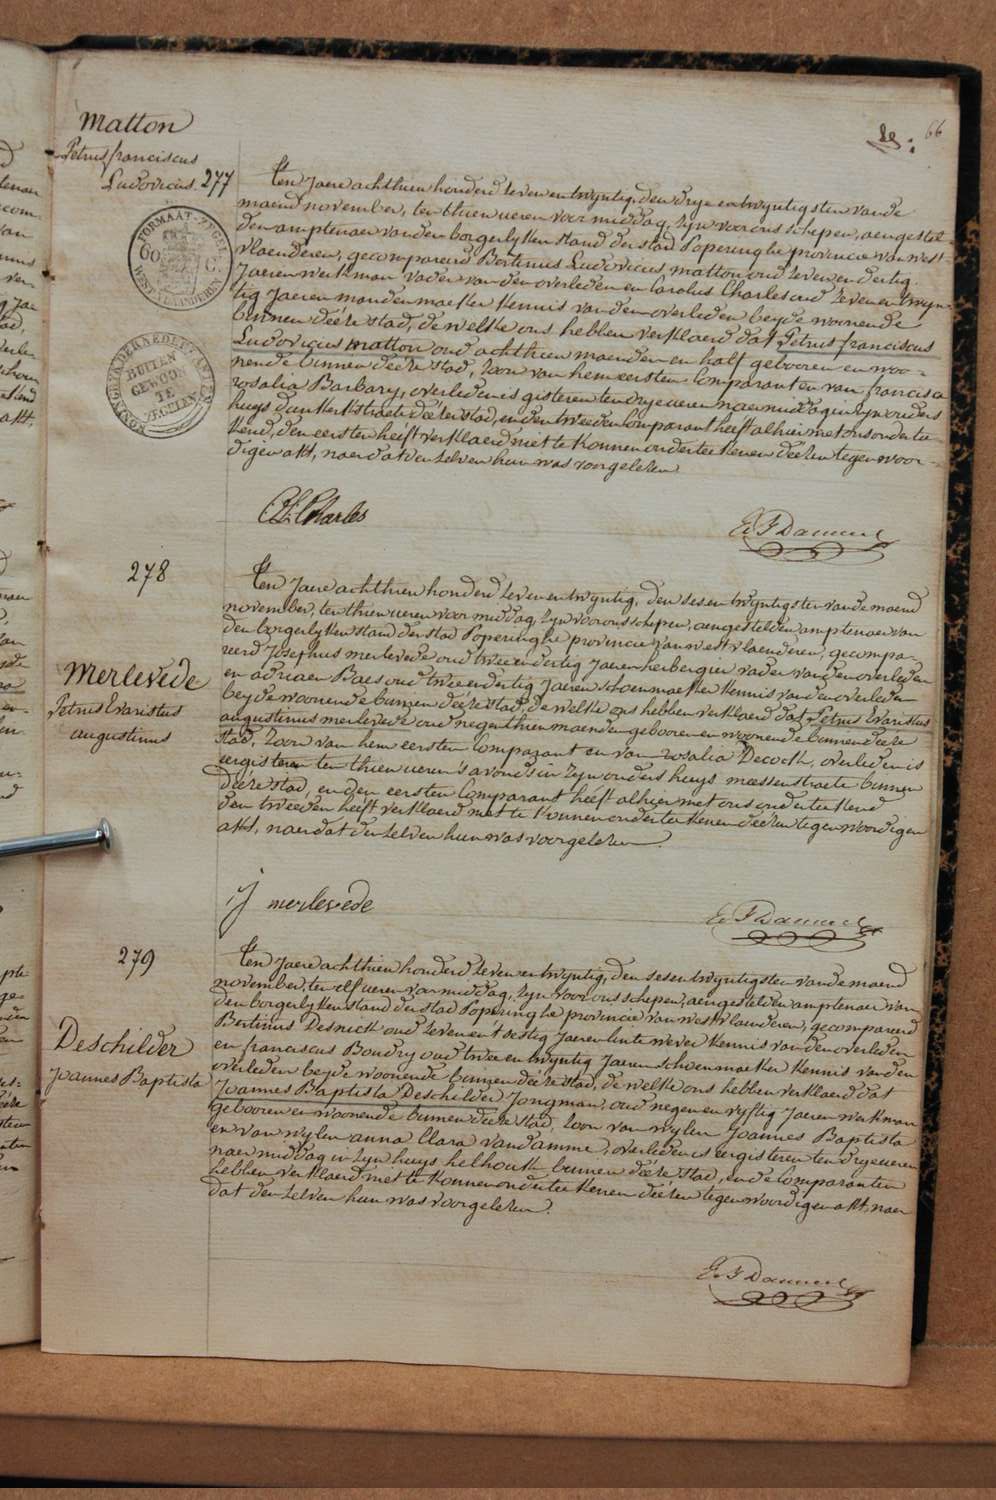 66
Matton
Petrus franciscus
Ludovicus 277
FORMAAT-ZEGEL
60 C.
WEST-VLAANDEREN
KONINGRYK DER NEDERLANDEN
BUITEN
GEWOON
TE
ZEGELEN
Ten Jaere achthien honderd zeven en twyntig, den drye en twyntigsten van de
maend november, ten thien ueren voor middag, zyn voor ons schepen, aengestel-
den amptenaer van den borgerlyken stand der stad Poperinghe provincie van west-
vlaenderen, gecompareerd Bertinus Ludovicus matton oud zeven en dertig
Jaeren werkman vader van den overleden en Carolus Charles oud zeven en twyn-
tig Jaeren mandenmaeker kennis van den overleden beyde woonende
binnen deéze stad, de welke ons hebben verklaerd dat Petrus franciscus
Ludovicus matton oud achthien maenden en half gebooren en woo-
nende binnen deéze stad, zoon van hem eersten Comparant en van francisca
rosalia Barbary, overleden is gisteren ten drye ueren naer middag in zyn ouders
huys dunkerkstraete deéze stad, en den tweeden Comparant heeft alhier met ons ondertee-
kend, den eersten heeft verklaerd niet te konnen onderteekenen deézen tegenwoor-
digen akt, naer dat den zelven hun was voorgelezen
C.L. Charles
278
Merlevede
Petrus Evaristus
augustinus
Ten Jaere achthien honderd zeven en twyntig, den ses en twyntigsten van de maend
november, ten thien ueren voor middag, zyn voor ons schepen, aengestelden amptenaer van
den borgerlyken stand der stad Poperinghe provincie van westvlaenderen, gecompa-
reerd Josephus merlevede oud twee en dertig Jaeren herbergier vader van den overleden
en adriaen Baes oud twee en dertig Jaeren schoenmaeker kennis van den overleden
beyde woonende binnen deéze stad, de welke ons hebben verklaerd dat Petrus Evaristus
augustinus merlevede oud negenthien maenden gebooren en woonende binnen deéze
stad, zoon van hem eersten Comparant en van rosalia Decock, overleden is
eergisteren ten thien ueren 's avonds in zyn ouders huys meessenstraete binnen
deéze stad, en den eersten Comparant heeft alhier met ons onderteekend
den tweeden heeft verklaerd niet te konnen onderteekenen deézen tegenwoordigen
akt, naer dat den zelven hun was voorgelezen
J merlevede
279
Deschilder
Joannes Baptista
Ten Jaere achthien honderd zeven en twyntig, den ses en twyntigsten van de maend
november, ten elf ueren voormiddag, zyn voor ons schepen, aengestelden amptenaer van
den borgerlyken stand der stad Poperinghe provincie van westvlaenderen, gecompareerd
Bertinus Desnick oud zeven en 't sestig Jaeren linte wever kennis van den overleden
en franciscus Boudry oud twee en twyntig Jaeren schoenmaeker kennis van den
overleden beyde woonende binnen deéze stad, de welke ons hebben verklaerd dat
Joannes Baptista Deschilder Jongman, oud negen en vyftig Jaeren werkman
gebooren en woonende binnen deéze stad, zoon van wylen Joannes Baptista
en van wylen anna Clara Vandamme, overleden is eergisteren ten drye ueren
naer middag in zyn huys helhouk binnen deéze stad, en de Comparanten
hebben verklaerd niet te konnen onderteekenen deézen tegenwoordigen akt, naer
dat den zelven hun was voorgelezen.